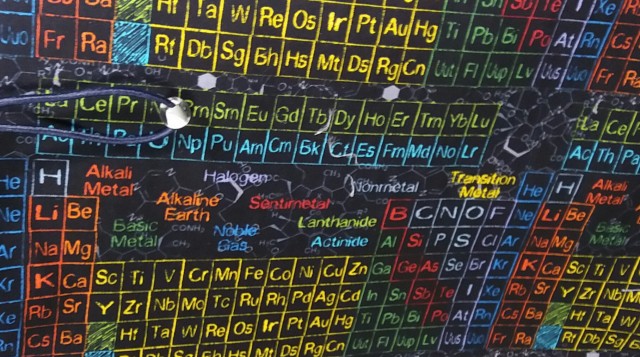 Hf Ta W Re Os Ir Pt Au Hg Tl Pb Bi Te I Xe Cs Ba
Uuo Fr Ra Rf Db Sg Bh Hs Mt Ds Rg Cn Uut Fl Uup Lv Uus Uuo Fr Ra
Po At Rn
Ce Pr Pm Sm Eu Gd Tb Dy Ho Er Tm Yb Lu La Ce
Ac Th Pa U Np Pu Am Cm Bk Cf Es Fm Md No Lr Ac Th Pa
He H Alkali Metal Halogen Nonmetal Transition Metal He H Alkali Metal
Ne Li Be Alkaline Earth Semimetal B C N O F Ne Li Be
Basic Metal Noble Gas Lanthanide Actinide
Ar Na Mg Al Si P S Cl Ar Na Mg
K Ca Sc Ti V Cr Mn Fe Co Ni Cu Zn Ga Ge As Se Br Kr K Ca Sc Ti V
Xe Rb Sr Y Zr Nb Mo Tc Ru Rh Pd Ag Cd In Sn Sb Te I Xe Rb Sr Y Zr Nb
Rn Cs Ba Hf Ta W Re Os Ir Pt Au Hg Tl Pb Bi Po At Rn Cs Ba Hf Ta W
Rf Db Sg Bh Hs Mt Ds Rg Cn Uut Fl Uup Lv Uus Uuo Rf Db Sg